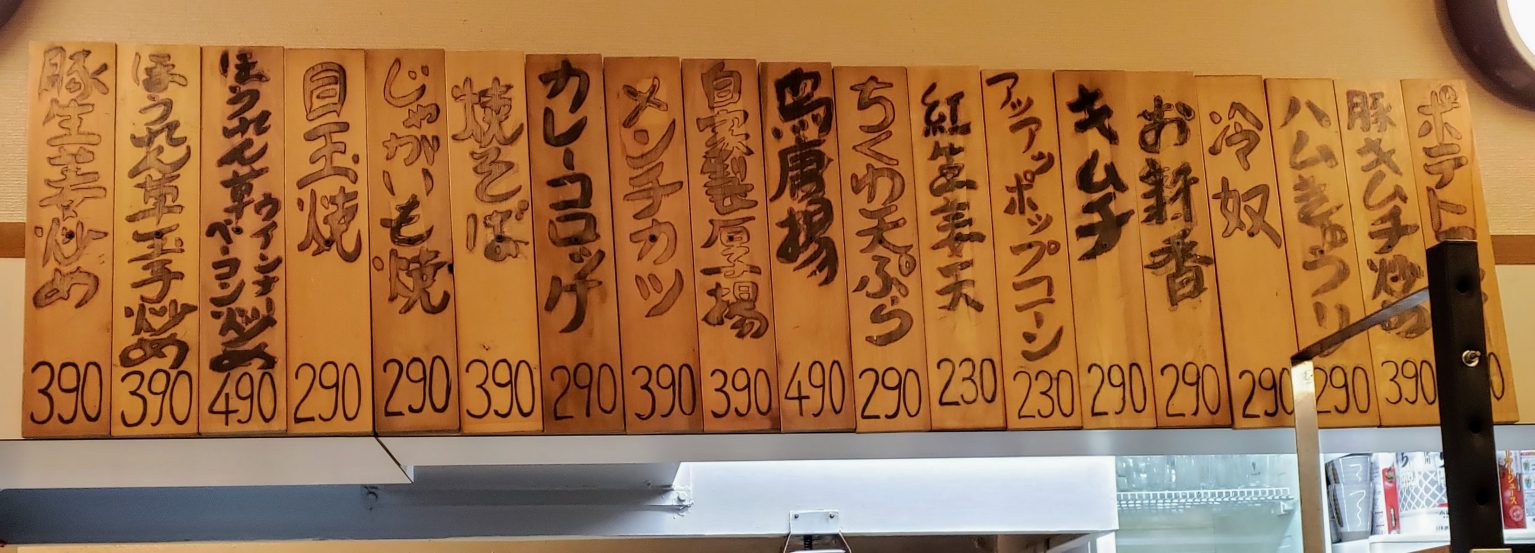 ポテト
豚キムチ炒め
390
ハムきゅうり
290
冷奴
290
お新香
290
キムチ
290
アツアツポップコーン
230
紅生姜天
230
ちくわ天ぷら
290
鳥唐揚
490
自家製厚揚
390
メンチカツ
390
カレーコロッケ
290
焼そば
390
じゃがいも焼
290
目玉焼
290
ほうれん草ウインナーベーコン炒め
490
ほうれん草玉子炒め
390
豚生姜炒め
390